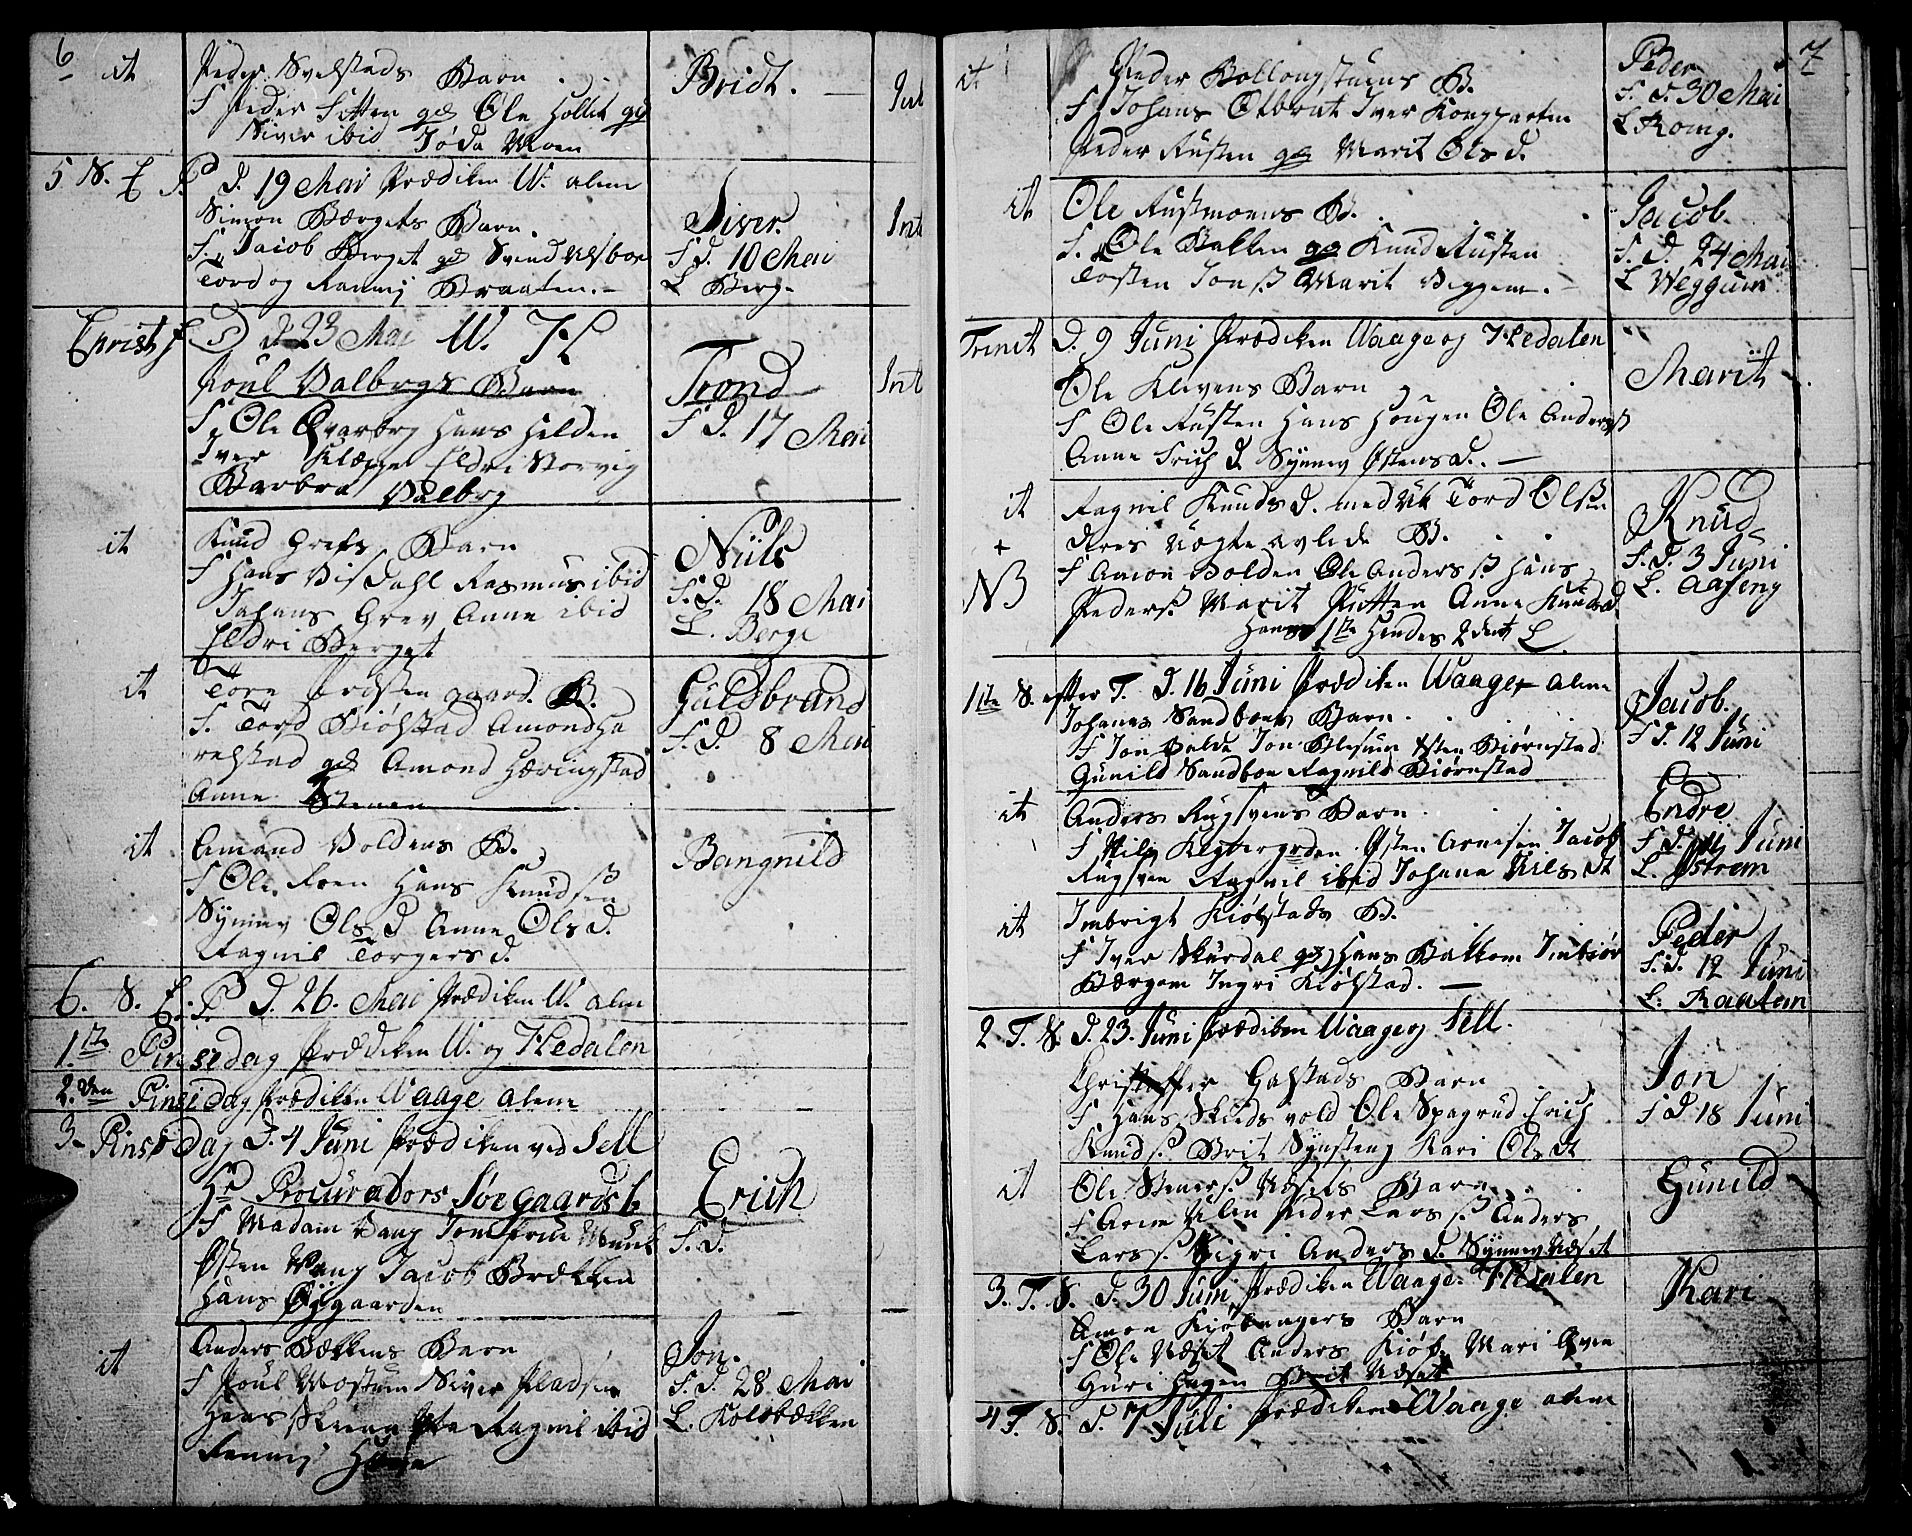 6
it
Peder Svelstads Barn
F Peder Sitten gds Ole Hollet gds
Siver ibid Jøda Moen
Bridt.
Int
5 S. E P. D. 19 Mai Prædiken W. alene
Simon Bergets Barn.
F. Jacob Berget gds Svend
Tord og Rannij Braaten.
Siver.
F. D. 10 Mai
L Berg.
Int
Christ f D d 23 Mai W. H
Poul Valbergs Barn
F. Ole Qvarberg Hans Helden
Iver Klæppe Eldri Storvig
Barbra Valberg
Trond
F D. 17 Mai
Int
it
Knud Grefs Barn
F Hans Visdahl Rasmus ibid
Johans Grev Anne ibid
Eldri Berget
Niils
F. D. 18 Mai
L. Berge
it
Tore Prøstengaard. B.
F. Tord Kiølstad Amond Ha
relstad gds Amond Hæringstad
Anne Stenen
Guldbrand
F. D. 8 Mai
it
Amund Voldens B.
F Ole Roen Hans Knudsen
Synnev Ols D. Anne Ols D.
Ragnil Torgers d.
Bangnild
6. S. E. P. D. 26. Mai Prædiken W. alene
1ste Pinsedag Prædiken W. og Hedalen
2den Pinsedag Prædiken Waage alene
3- Pinsedag D. 4 Juni Prædiken ved Sell
Hr Procurators Søegaards b
F Madam Bang Jomfrue Munk
Østen Vang Jacob Brækken
Hans Øygaarden
Erich
F. D.
it
Anders Bækkens Barn
F Poul Mostum Siver Pladsen
Hans Ragnil ibid
Rannij
Jon.
F. D. 28 Mai
L. Kolobækken
7
it
Peder Kollongstuens B.
F Johans Olbrat Iver Kongsparten
Peder Rusten gds Marit Ols D.
Peder
F. D. 30 Mai
L Romg.
it
Ole Rustmoens B.
F. Ole Bakken gds Knud Rusten
Tosten Jons. Marit Veggem.
Jacob
F. D. 24 Mai
L Weggum
Trinit D. 9 Juni Prædiken Waage og Hedalen
Ole Klevens Barn
F Ole Rusten Hans Hougen Ole Anders
Anne Erich D. Synnev Østens d.
Marit
it
+
NB
Ragnil Knuds D. med Uk Tord Olsen
deres uægte avlede B.
F Amon Volden Ole Anders s. Hans
Peders. Marit Rutten Anne Knudsd
Hans 1ste Hendes 2den L
Knud
F. D. 3 Juni
L. Aaseng
1ste S. efter T. D. 16 Juni Prædiken Waage alene
Johanes Sandboens Barn
F Jon Jon Blesum Østen Biørnstad
Gunild Sandboe Ragnild Biørnstad
Jacob.
F D. 12 Juni
it
Anders Rugsvens Barn
F Nils Klostergarden Østen Arnesen Jacob
Rugsven Ragnil ibid Johana Nils D
Endre
F. D. 11 Juni
L. Ystrem
it
Imbrigt Kiølstads B.
F Iver Skurdal gds Hans Bakken Imbiør
Bergem Ingri Kiølstad.
Peder
F. D. 12 Juni
L. Raastem
2 T. S. D. 23. Juni Prædiken Waage og Sell.
Christoffer Galstads Barn
F Hans Skiedsvold Ole Spagrud Erich
Knuds. Brit Synsteng Kari Ols D
Jon
F D 18 Juni
it
Ole Steners. Næsets Barn
F Arne Ulen Peder Lars s. Anders
Lars s. Sigri Anders d. Synnev Næset
Gunild
3. T. S. D. 30 Juni Prædiken Waage. Hedalen
Amon Kiøbangers Barn
F Ole Næset Anders Kiøb. Mari Øven
Guri Hagen Brit Næset
Kari
4 T. S. D. 7 Juli Prædiken Waage alene